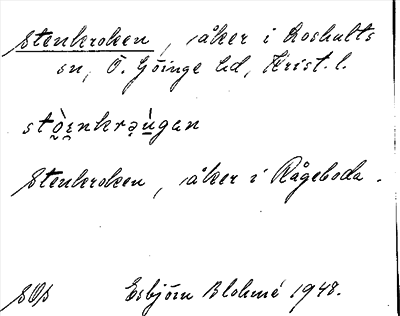 Stenkroken, åker i Loshults
sn, Ö. Göinge hd, Krist. l.
stò̰ḭnkrə̰ṵ̀gan
Stenkroken, åker i Rågeboda.
SOs Esbjörn Blohmé 1948.